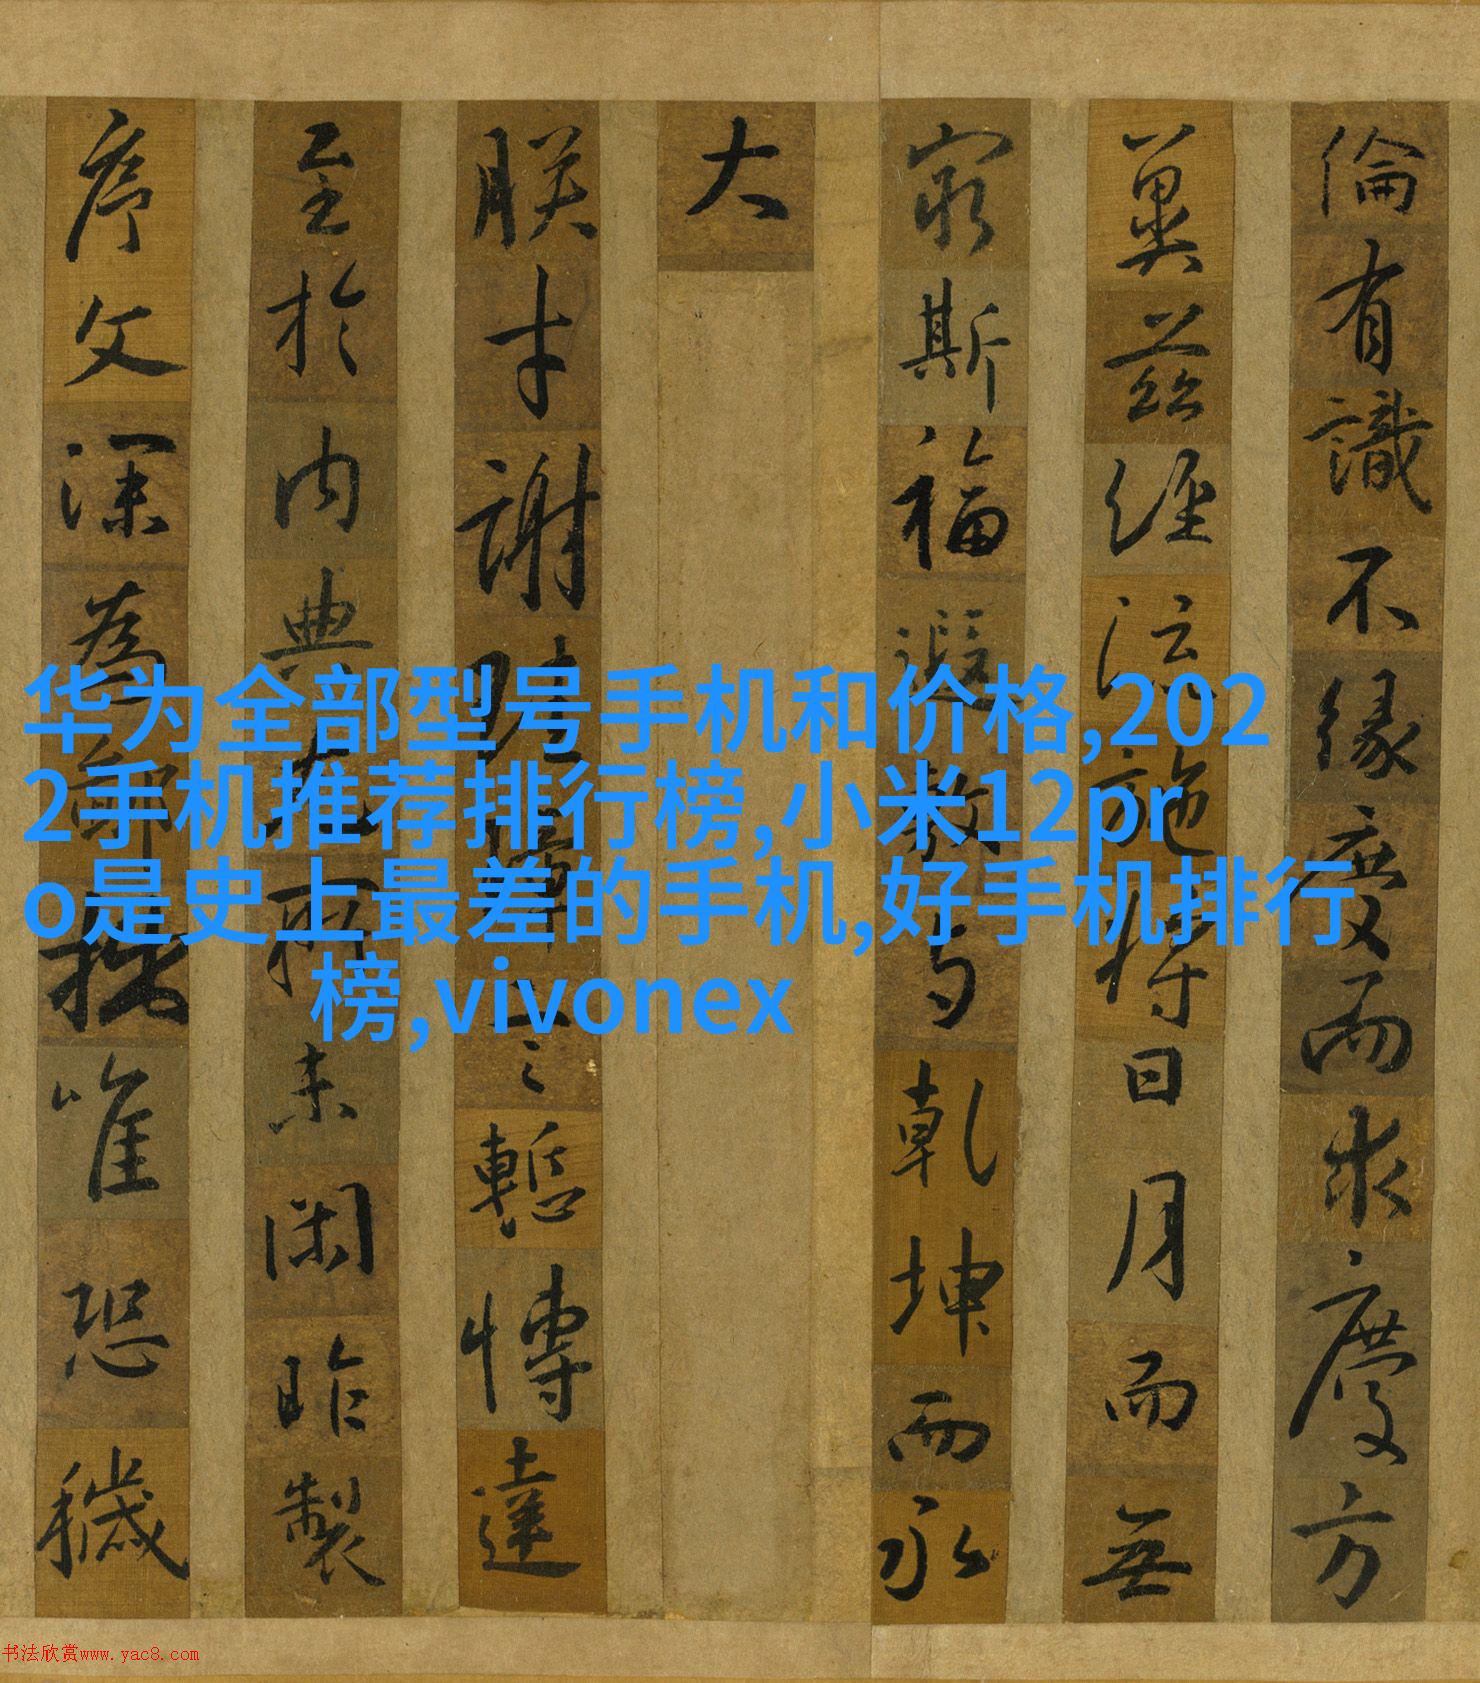 倫有識不緣慶而求慶方
冀茲經流施將日月而無
窮斯福遐敷与乾坤而永
大
朕才謝珪璋言慙博達
至於內典尤所未閑昨製
序文深為鄙拙唯恐穢
华为全部型号手机和价格,202
2手机推荐排行榜,小米12pr
o是史上最差的手机,好手机排行
榜,vivonex
书法欣赏www.yac8.com